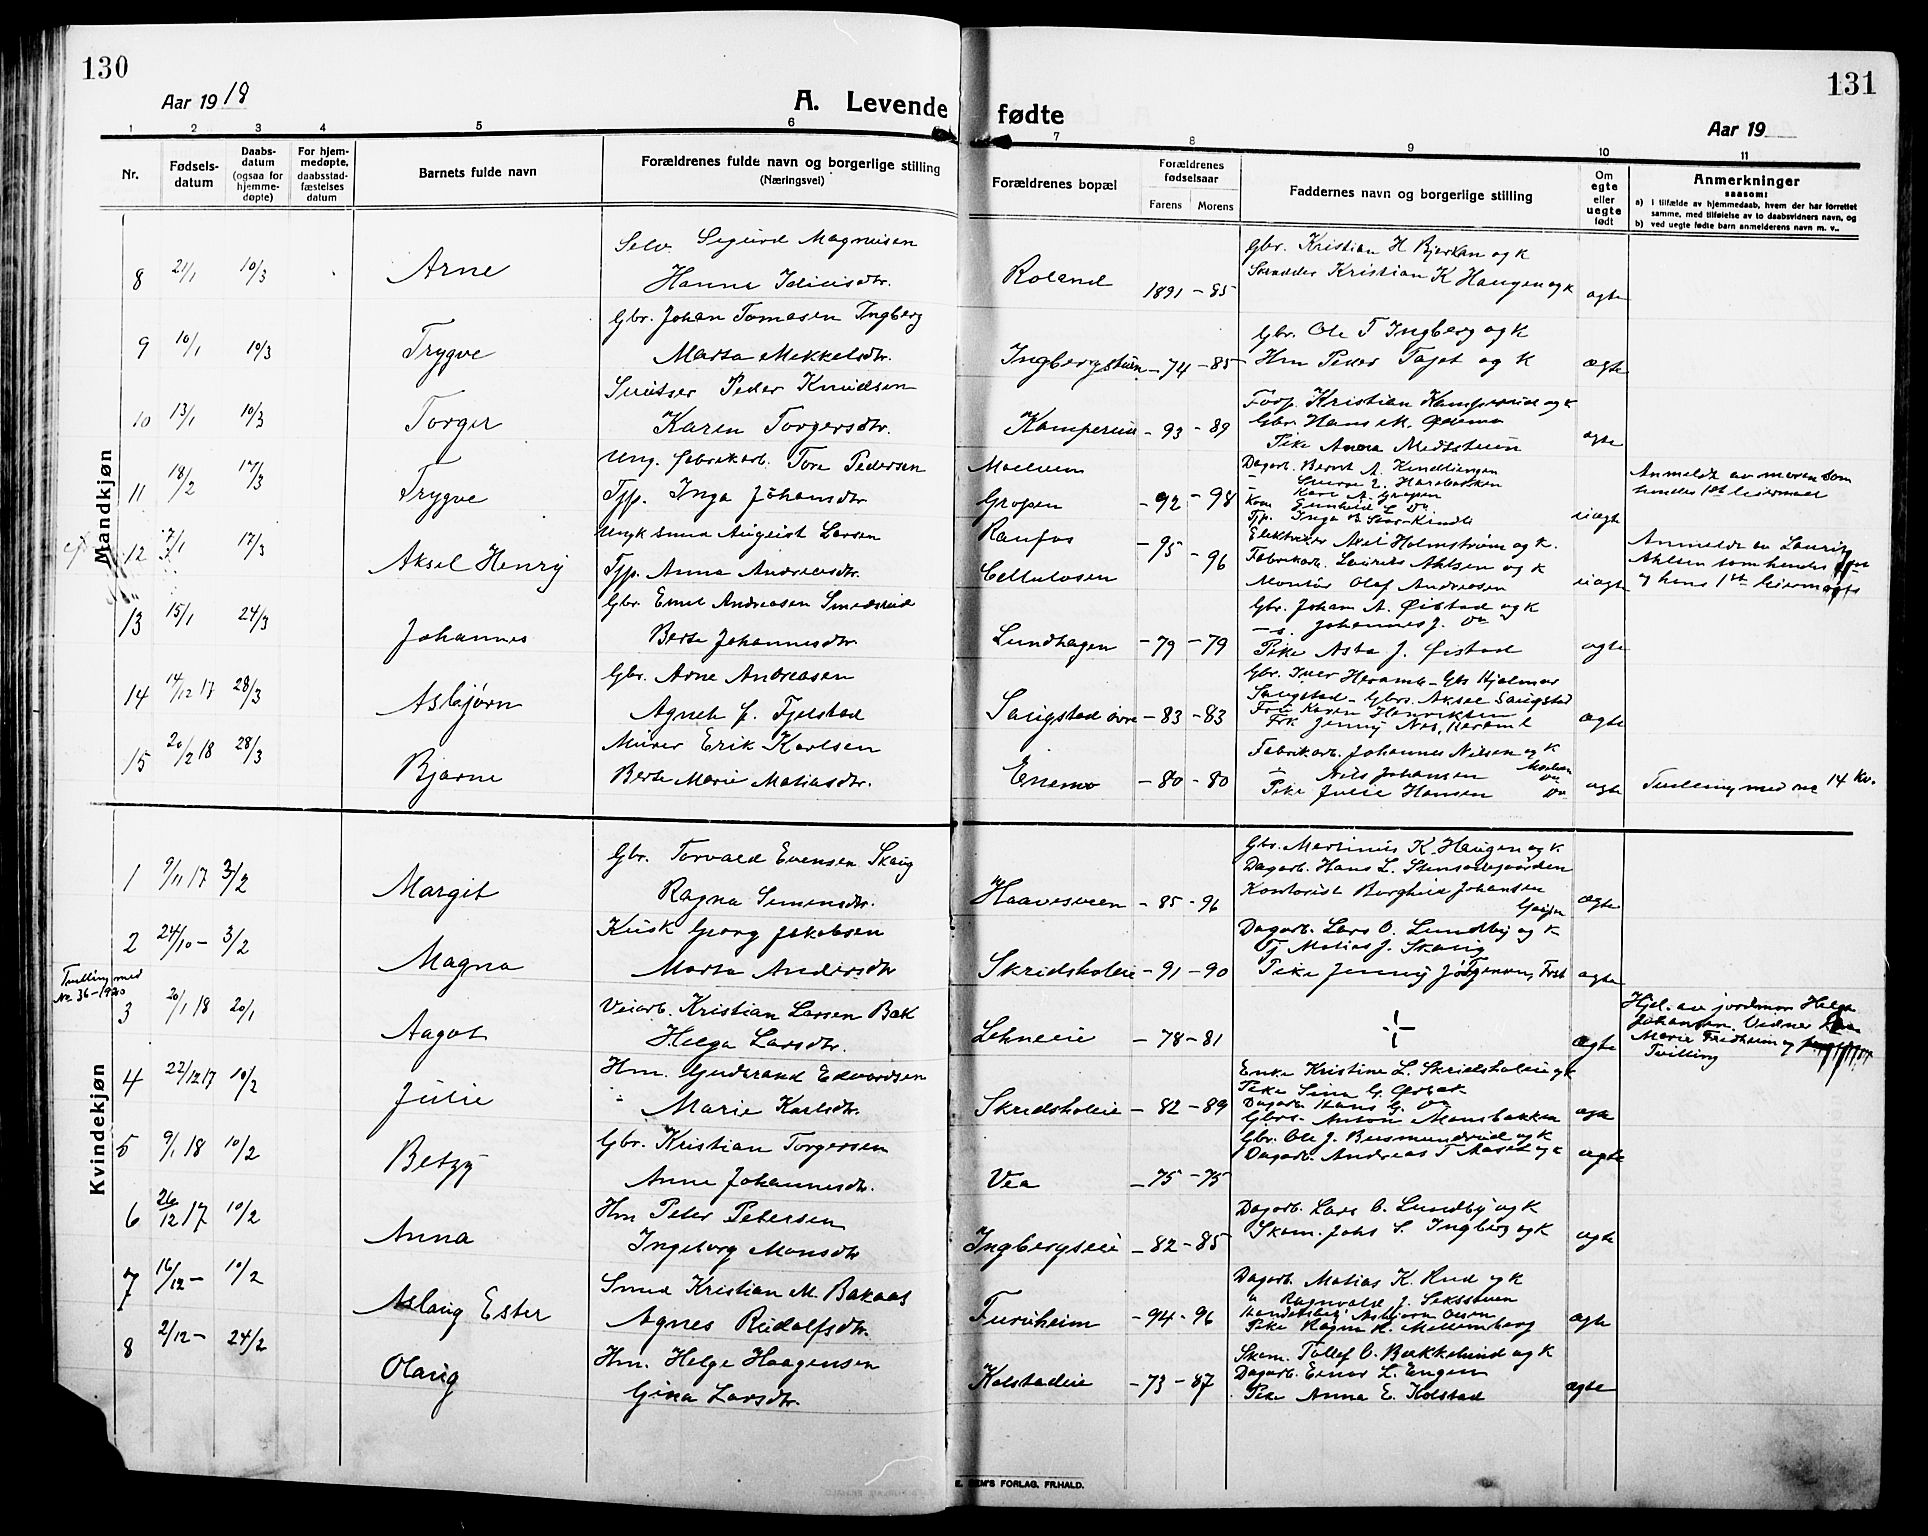 130
Aar 1918
A. Levende
1 2 3 4 5 6
Nr.
Fødsels-
datum
Daabs-
datum
(ogsaa for
hjemme-
døpte)
For hjem-
medøpte,
daabsstad-
fæstelses
datum
Barnets fulde navn
Forældrenes fulde navn og borgerlige stilling
(Næringsvei)
Mandkjøn
8 21/1 10/3 Arne
Selv. Sigurd Magnusen
Hanne Juliusdtr.
9 10/1 10/3 Trygve
Gbr. Johan Tomasen Ingberg
Marta Mekkelsdtr.
10 13/1 10/3 Torger
Peder Knudsen
Karen Torgersdtr.
11 18/2 17/3 Trygve
Ung. fabrikarb. Tore Pedersen
Tjp. Inga Johansdtr.
12 7/1 17/3 Aksel Henry
Ungk. smed August Larsen
Tjp. Anna Andreasdtr.
13 15/1 24/3 Johannes
Gbr. Emil Andreasen Smedsrud
Berte Johannesdtr.
14 14/12 17 28/3 Asbjørn
Gbr. Arne Andreasen
Agnete Fjelstad
15 20/2 18 28/3 Bjarne
Murer Erik Karlsen
Berte Marie Matiasdtr.
Kvindekjøn
1 9/11 17 3/2 Margit
Gbr. Torvald Evensen Skaug
Ragna Simensdtr.
2 24/10 – 3/2 Magna
Kusk Georg Jakobsen
Marta Andersdtr
Tvilling med
Nr. 36 – 1920
3 20/1 18 20/1 Aagot
Veiarb. Kristian Larsen Bak
Helga Larsdtr.
4 22/12 17 10/2 Julie
Hm. Gudbrand Edvardsen
Marie Karlsdtr.
5 9/1 18 10/2 Betzy
Gbr. Kristian Torgersen
Anne Johannesdtr.
6 26/12 17 10/2 Anna
Hm Peter Petersen
Ingeborg Monsdtr
7 16/12 – 10/2 Aslaug Ester
Smed Kristian M. Bakaas
Agnes Rudolfsdtr.
8 2/12 – 24/2 Olaug
Hm. Helge Haagensen
Gina Larsdtr.
131
Aar 19
fødte
7 8 9 10 11
Forældrenes bopæl
Forældrenes
fødselsaar
Farens Morens
Faddernes navn og borgerlige stilling
Om
egte
eller
uegte
født
Anmerkninger
saasom:
a) I tilfælde av hjemmedaab, hvem der har forrettet
samme, med tilføielse av to daabsvidners navn, og
b) ved uegte fødte barn anmelderens navn m. v..
Roland 1891 – 85
Gbr. Kristian H Bjerkan og k
Skrædder Kristian K Haugen og k
ægte
Ingbergstuen – 74 – 85
Gbr. Ole T Ingberg og k
Hm Peder Tajet og k
ægte
– 93 – 89
Forp. Kristian Kampesrud og k
Gbr. Hans M.
Pike Anna Medtstuen
ægte
Moelven
Gropen – 92 – 98
Dagarb. Bernt A. Kindliengen
Kari A. Gropen
Tjp. Inga B.
uægte
Anmeldt av moren som
hendes 1ste leiermaal
Raufos – 95
Cellulosen – 96
Elektriker Axel Holmstrøm og k.
Fabrikarb. Laurits Ahlsen og k
Montør Olaf Andreasen
uægte
Anmeldt av Laurits
Ahlsen som hendes
og hans 1ste leiermaal
Lundhagen – 79 – 79
Gbr. Johan A. Øistad og k
– s. Johannes J. do
Pike Asta J. Øistad
ægte
Saugstad øvre – 83 – 83
Gbr. Iver Heramb – Gbs Hjalmar
Saugstad – Gbrs. Aksel Saugstad
Frk Karen Henriksen
Frk Jenny Heramb
ægte
Enemo – 80 – 80
Fabrikarb. Johannes Nilsen og k
Nils Johansen Moelven
Pike Julie Hansen do
ægte
Tvilling med nr 14 kv.
– 85 – 96
Gbr. Martinus K. Haugen og k
Dagarb. Hans L. Stensodegaarden
Kontorist Borghild Johansen
ægte
Skridsholeie – 91 – 90
Dagarb. Lars O. Lundby og k
Tj Matias J. Skaug
Pike Jenny Jørgensen,
ægte
Lehneeie – 78 – 81
ægte
Hjd. av jordmor Helga
Johansen. Vidner
Marie Fredheim og
Tvilling
Skridsholeie – 82 – 89
Enke Kristine L. Skridsholeie og k
Pike Sina G.
Dagarb. Hans G. do
Gbrs. Anton Monsbakken
ægte
Vea – 75 – 75
Gbr. Ole J. Busmundrud og k
Dagarb. Andreas T Aaset og k
ægte
Ingbergseie – 82 – 85
Dagarb. Lars O. Lundby og k
Skom. Johs S. Ingberg og k
ægte
Furuheim – 94 – 96
Dagarb. Matias K. Rud og k
" Ragnvald J.
Handelsbetj Asbjørn Olsen
Pike Ragna R. Mellemberg
ægte
Kolstadeie – 73 – 87
Skom. Tollef O. Bækkelund og k
Dagarb. Einar L. Engen
Pike Anna E. Kolstad
ægte
FORLAG, FR.HALD.